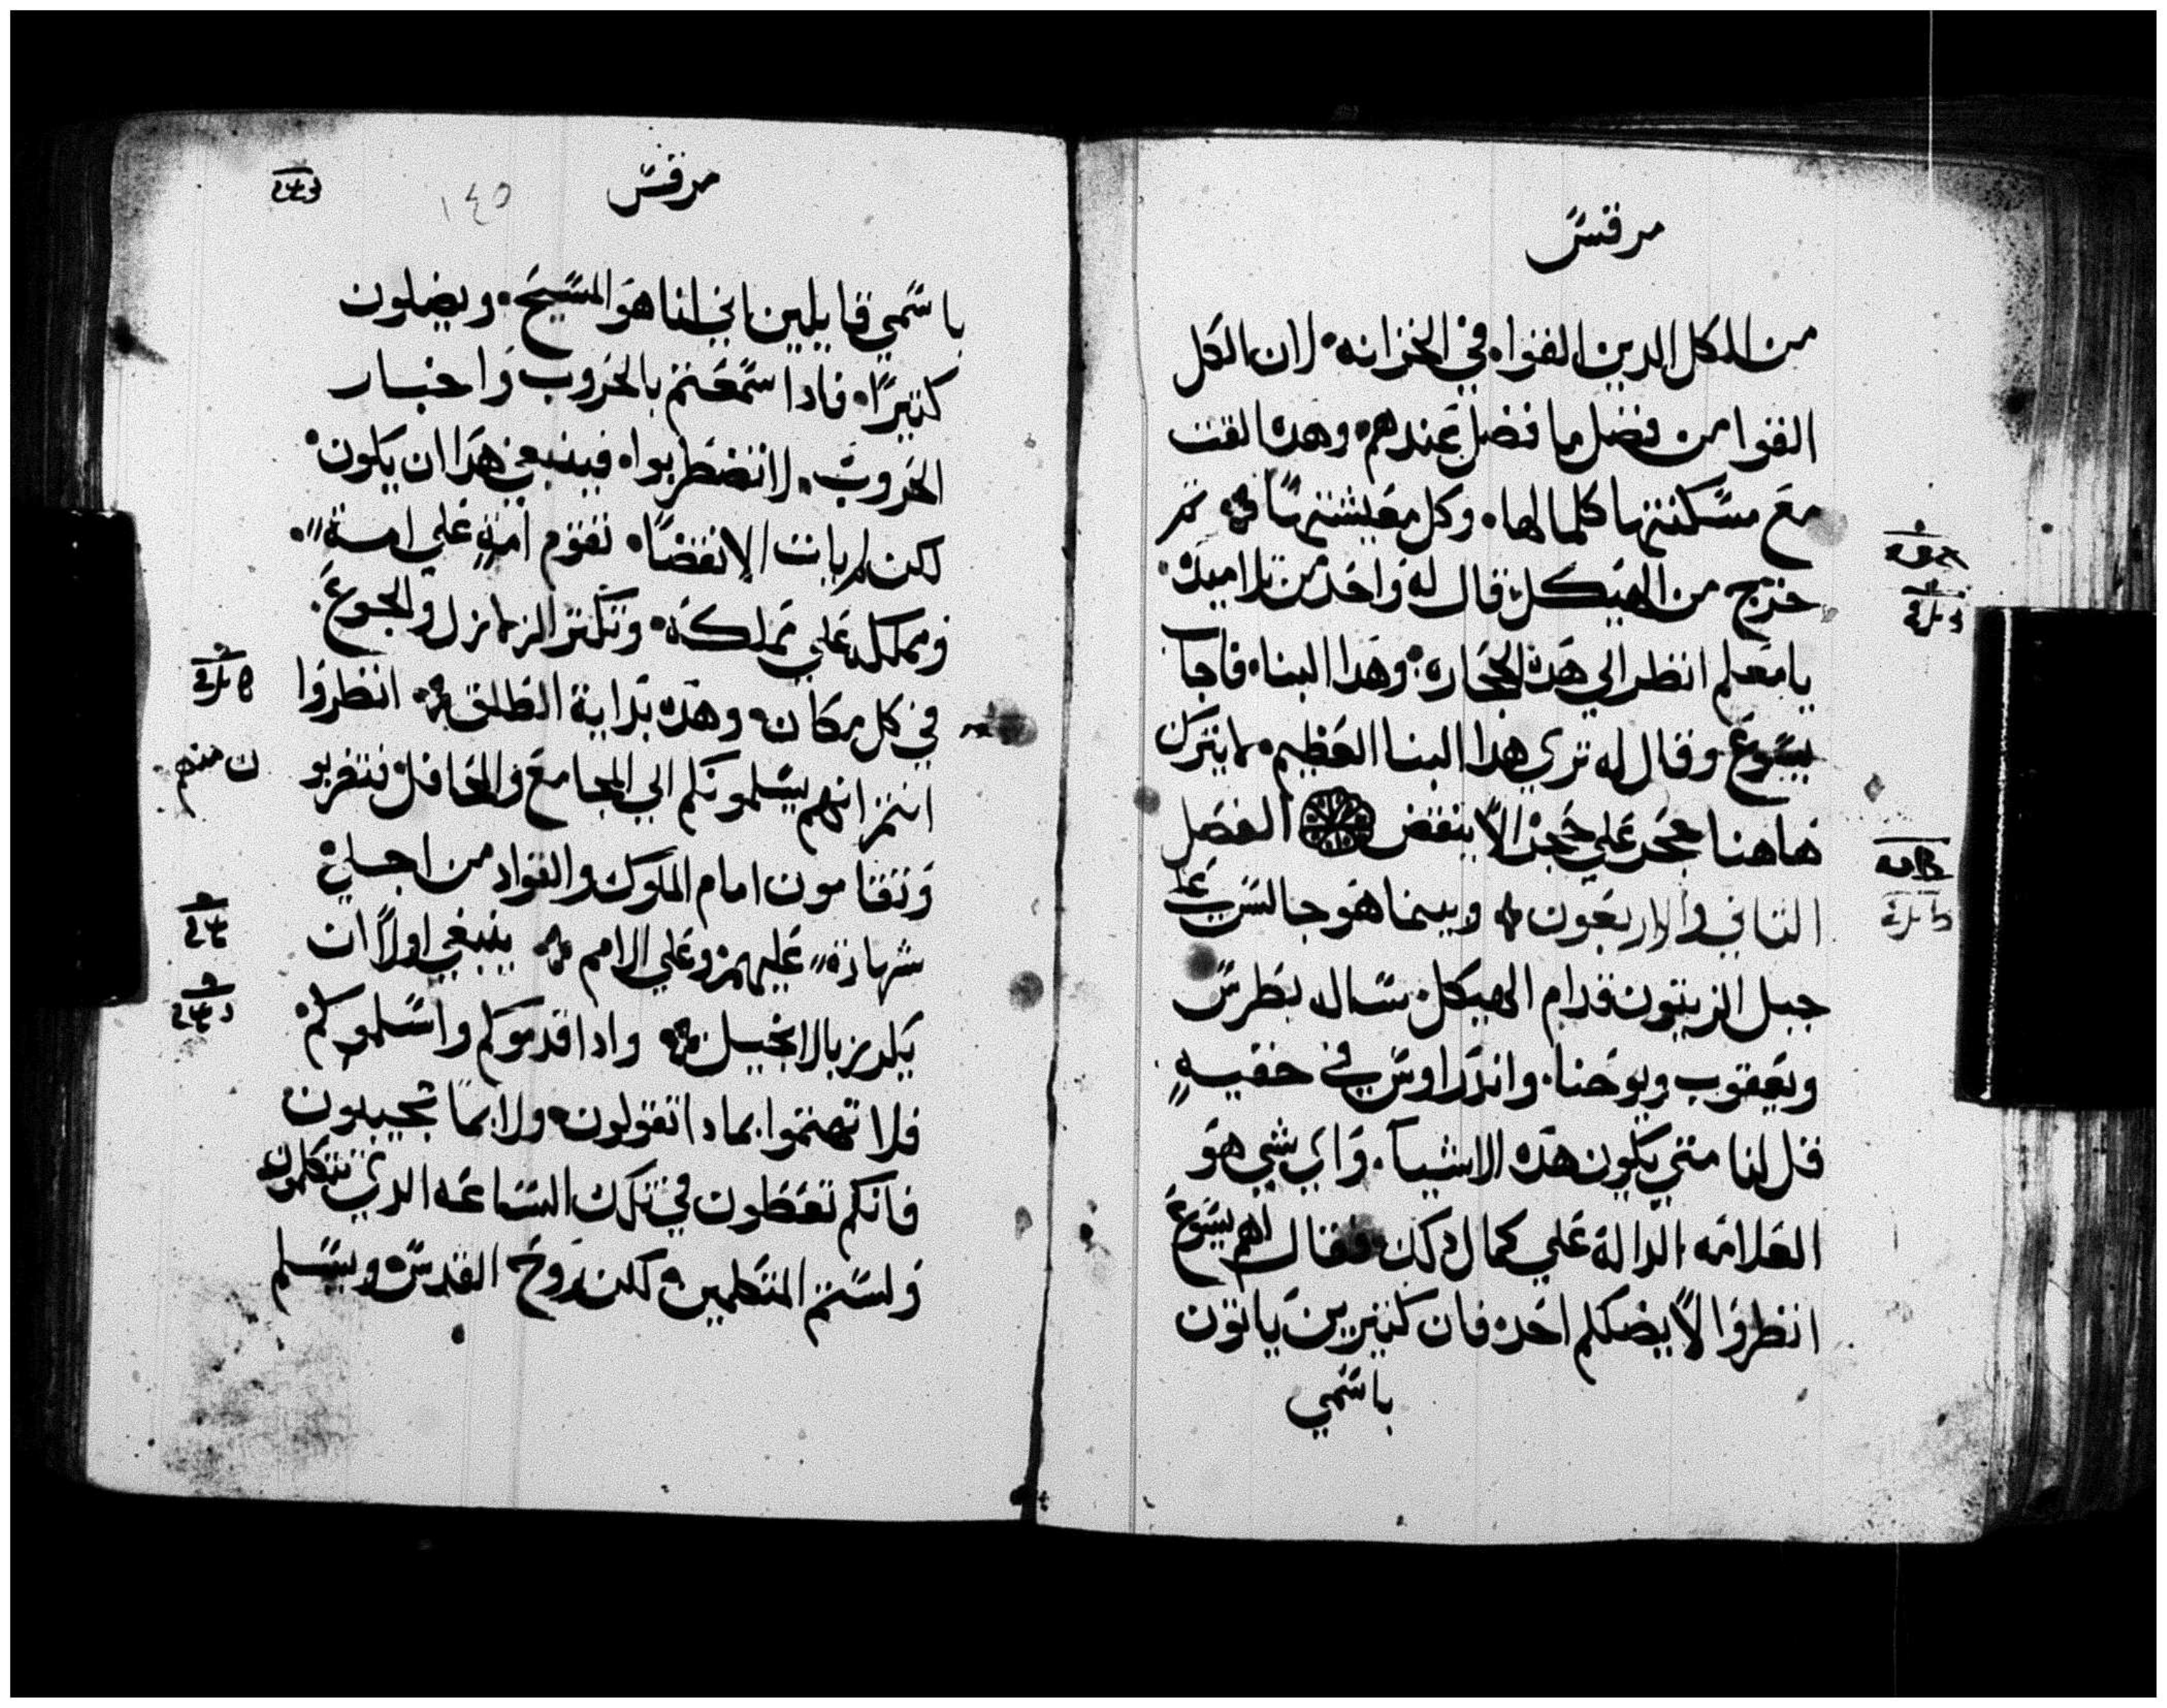 مرقس
من الكل الدين القوا في الخزانه لان الكل
القوا من فضل ما فضل عندهم وهده القت
مع مسكنتها كلما لها وكل معيشتها ثم
خرج من الهيكل قال له واحد من تلاميده
يا معلم انظر الي هده الحجاره وهدا البناء فاجاب
يسوع وقال له تري هدا البنا العظيم ما يترك
هاهنا حجر علي حجر الا ينقض الفصل
التاني والاربعون وبينما هو جالس علي
جبل الزيتون قدام الهيكل سال بطرس
ويعقوب ويوحنا واندراوس في خفيه
قل لنا متي يكون هده الاشيا واي شي هو
العلامه الداله علي كمال دلك فقال لهم يسوع
انظروا لا يضلكم احد فان كتيرين ياتون
باسمي
مرقس
١٤٥
باسمي قايلين اني انا هو المسيح ويضلون
كتيرا فادا سمعتم بالحروب واخبار
الحروب لا تضطربوا فينبغي هدا ان يكون
لكن لم يات الانقضا تقوم امه علي امة
ومملكه علي مملكه وتكتر الزلازل والجوع
في كل مكان وهده بداية الطلق انظروا
انتم انهم يسلمونكم الي المجامع والمحافل فتضربو
ن منهم
وتقامون امام الملوك والقواد من اجلي
شهادة عليهم وعلي الامم ينبغي اولا ان
يكرز بالانجيل وادا قدموكم واسلموكم
فلا تهتموا بمادا تقولون ولا بما تجيبون
فانكم تعطون في تلك الساعه الدي تتكلمون
ولستم المتكلمين لكن روح القدس ويسلم